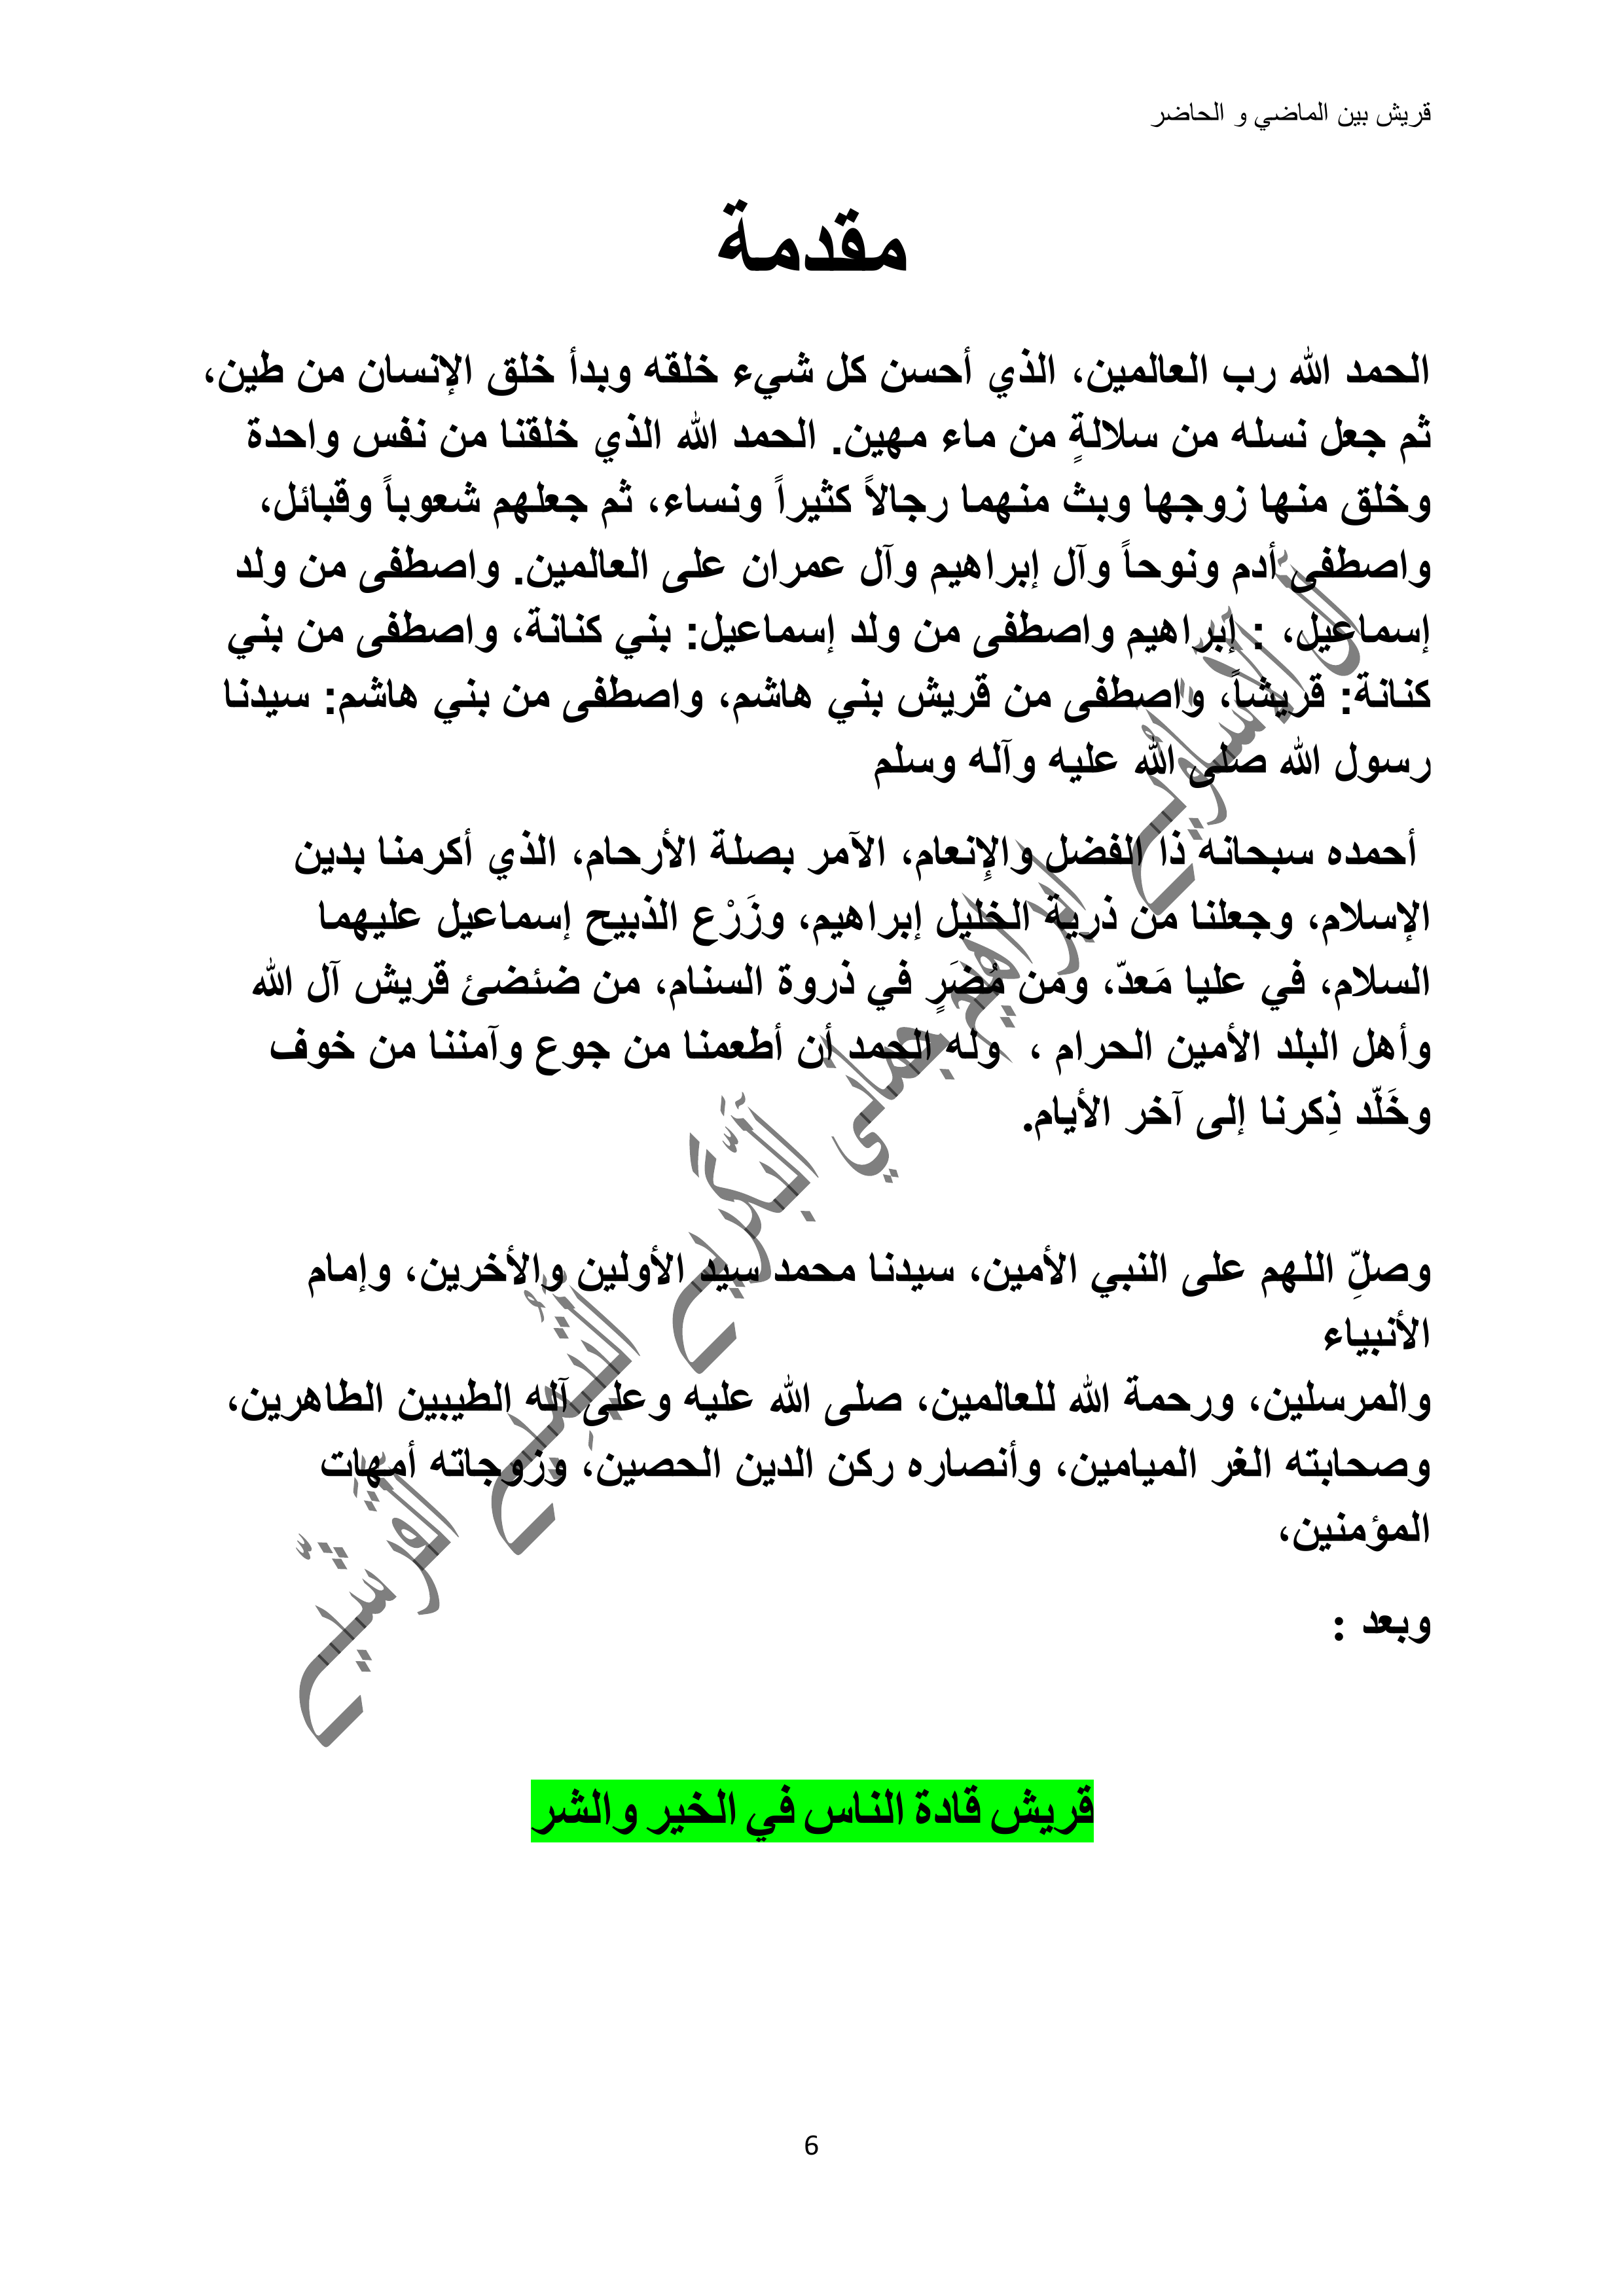 قريش بين الماضي و الحاضر
مقدمة
الحمد الله رب العالمين، الذي أحسن كل شيء خلقه وبدأ خلق الإنسان من طين،
ثم جعل نسله من سلالةٍ من ماء مهين. الحمد الله الذي خلقنا من نفس واحدة
وخلق منها زوجها وبث منهما رجالاً كثيراً ونساء، ثم جعلهم شعوباً وقبائل،
واصطفى أدم ونوحاً وآل إبراهيم وآل عمران على العالمين. واصطفى من ولد
إسماعيل، : إبراهيم واصطفى من ولد إسماعيل: بني كنانة، واصطفى من بني
كنانة: قريشاً، واصطفى من قريش بني هاشم، واصطفى من بني هاشم: سيدنا
رسول الله صلى الله عليه وآله وسلم
أحمده سبحانه ذا الفضل والإِنعام، الآمر بصلة الأرحام، الذي أكرمنا بدين
الإسلام، وجعلنا من ذرية الخليل إبراهيم، وزَرْع الذبيح إسماعيل عليهما
السلام، في عليا مَعدّ، ومن مُضَرٍ في ذروة السنام، من ضئضئ قريش آل الله
وأهل البلد الأمين الحرام ، وله الحمد أن أطعمنا من جوع وآمننا من خوف
وخَلّد ذِكرنا إلى آخر الأيام.
وصلِّ اللهم على النبي الأمين، سيدنا محمد سيد الأولين والأخرين، وإمام
الأنبياء
والمرسلين، ورحمة الله للعالمين، صلى الله عليه وعلى آله الطيبين الطاهرين،
وصحابته الغر الميامين، وأنصاره ركن الدين الحصين، وزوجاته أمهات
المؤمنين،
وبعد :
قريش قادة الناس في الخير والشر
6